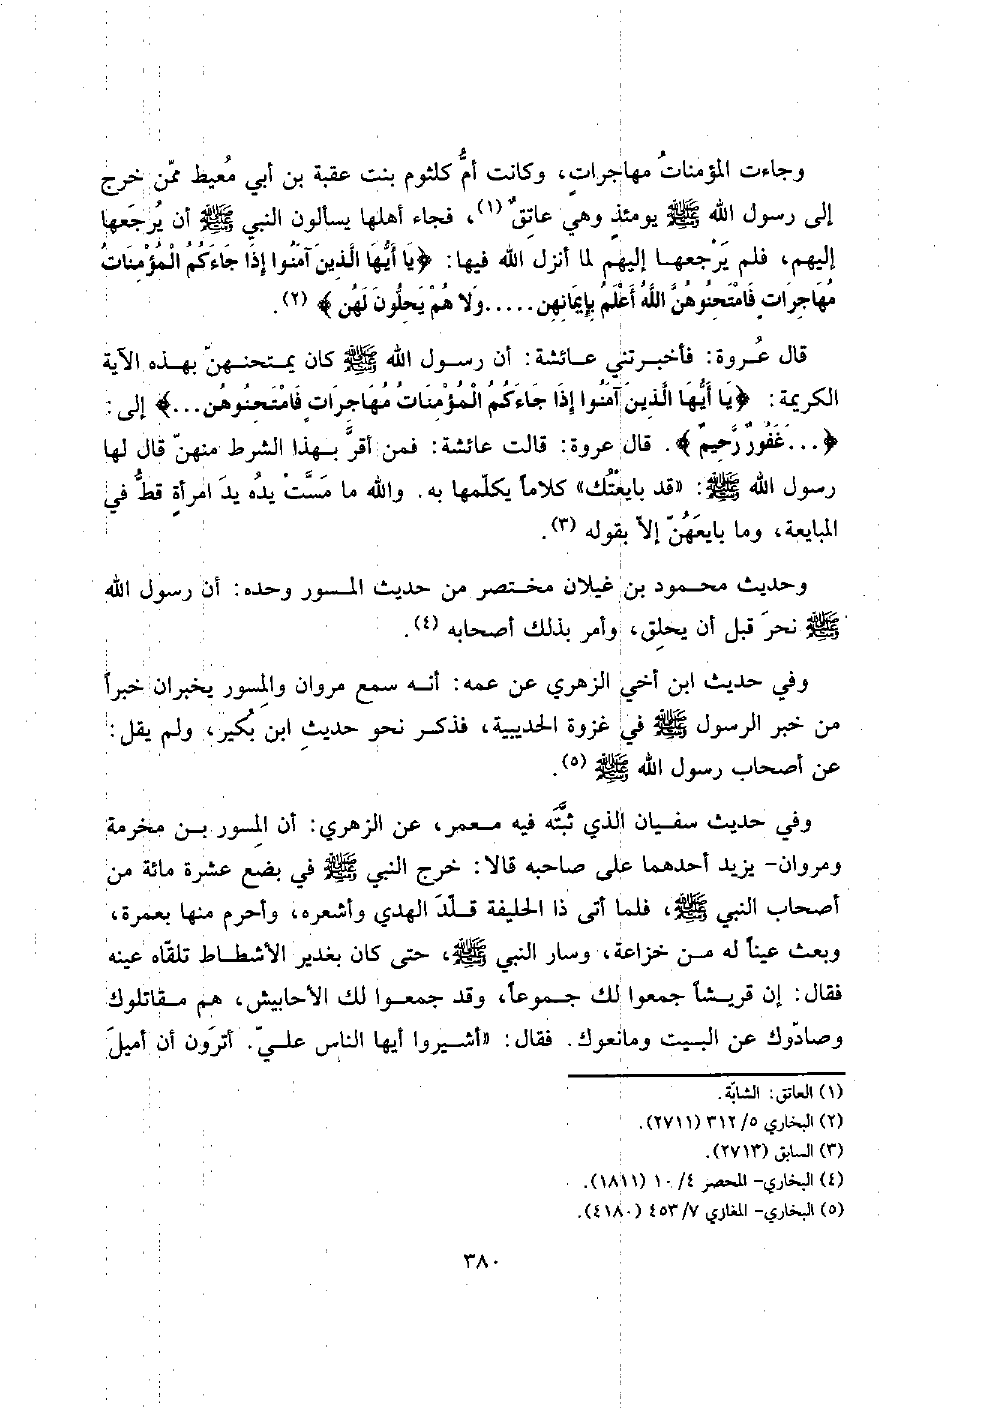 وجاءت المؤمناتُ مهاجراتٍ، وكانت أمُّ كلثوم بنت عقبة بن أبي مُعيط ممّن خرج
إلى رسول الله ﷺ يومئذٍ وهي عاتِقٌ (١)، فجاء أهلها يسألون النبي ﷺ أن يُرجَعها
إليهم، فلم يَرْجعها إليهم لما أنزل الله فيها: ﴿يَا أَيُّهَا الَّذِينَ آمَنُوا إِذَا جَاءَكُمُ الْمُؤْمِنَاتُ
مُهَاجِرَاتٍ فَامْتَحِنُوهُنَّ اللَّهُ أَعْلَمُ بِإِيمَانِهِن.....وَلَا هُمْ يَحِلُّونَ لَهُن ﴾ (٢).
قال عُروة: فأخبرتني عائشة: أن رسول الله ﷺ كان يمتحنهنّ بهذه الآية
الكريمة: ﴿يَا أَيُّهَا الَّذِينَ آمَنُوا إِذَا جَاءَكُمُ الْمُؤْمِنَاتُ مُهَاجِرَاتٍ فَامْتَحِنُوهُن...﴾ إلى:
﴿...غَفُورٌ رَّحِيمٌ ﴾. قال عروة: قالت عائشة: فمن أقرَّ بهذا الشرط منهنّ قال لها
رسول الله ﷺ: «قد بايعْتُك» كلاماً يكلّمها به. والله ما مَسَّتْ يدُه يدَ امرأةٍ قطُّ في
المبايعة، وما بايعَهُنّ إلاّ بقوله (٣).
وحديث محمود بن غيلان مختصر من حديث المسور وحده: أن رسول الله
ﷺ نحرَ قبل أن يحلِق، وأمر بذلك أصحابه (٤).
وفي حديث ابن أخي الزهري عن عمه: أنه سمع مروان والمِسور يخبران خبراً
من خبر الرسول ﷺ في غزوة الحديبية، فذكر نحو حديثِ ابن بُكير، ولم يقل:
عن أصحاب رسول الله ﷺ (٥).
وفي حديث سفيان الذي ثبَّتَه فيه معمر، عن الزهري: أن المِسور بن مخرمة
ومروان- يزيد أحدهما على صاحبه قالا: خرج النبي ﷺ في بضع عشرة مائة من
أصحاب النبي ﷺ، فلما أتى ذا الحليفة قلّدَ الهدي وأشعره، وأحرم منها بعمرة،
وبعث عيناً له من خزاعة، وسار النبي ﷺ، حتى كان بغدير الأشطاط تلقّاه عينه
فقال: إن قريشاً جمعوا لك جموعاً، وقد جمعوا لك الأحابيش، هم مقاتلوك
وصادّوك عن البيت ومانعوك. فقال: «أشيروا أيها الناس عليّ. أترَون أن أميلَ
(١) العاتق: الشابّة.
(٢) البخاري ٣١٢/٥ (٢٧١١).
(٣) السابق (٢٧١٣).
(٤) البخاري- المحصر ١٠/٤ (١٨١١).
(٥) البخاري- المغازي ٤٥٣/٧ (٤١٨٠).
٣٨٠